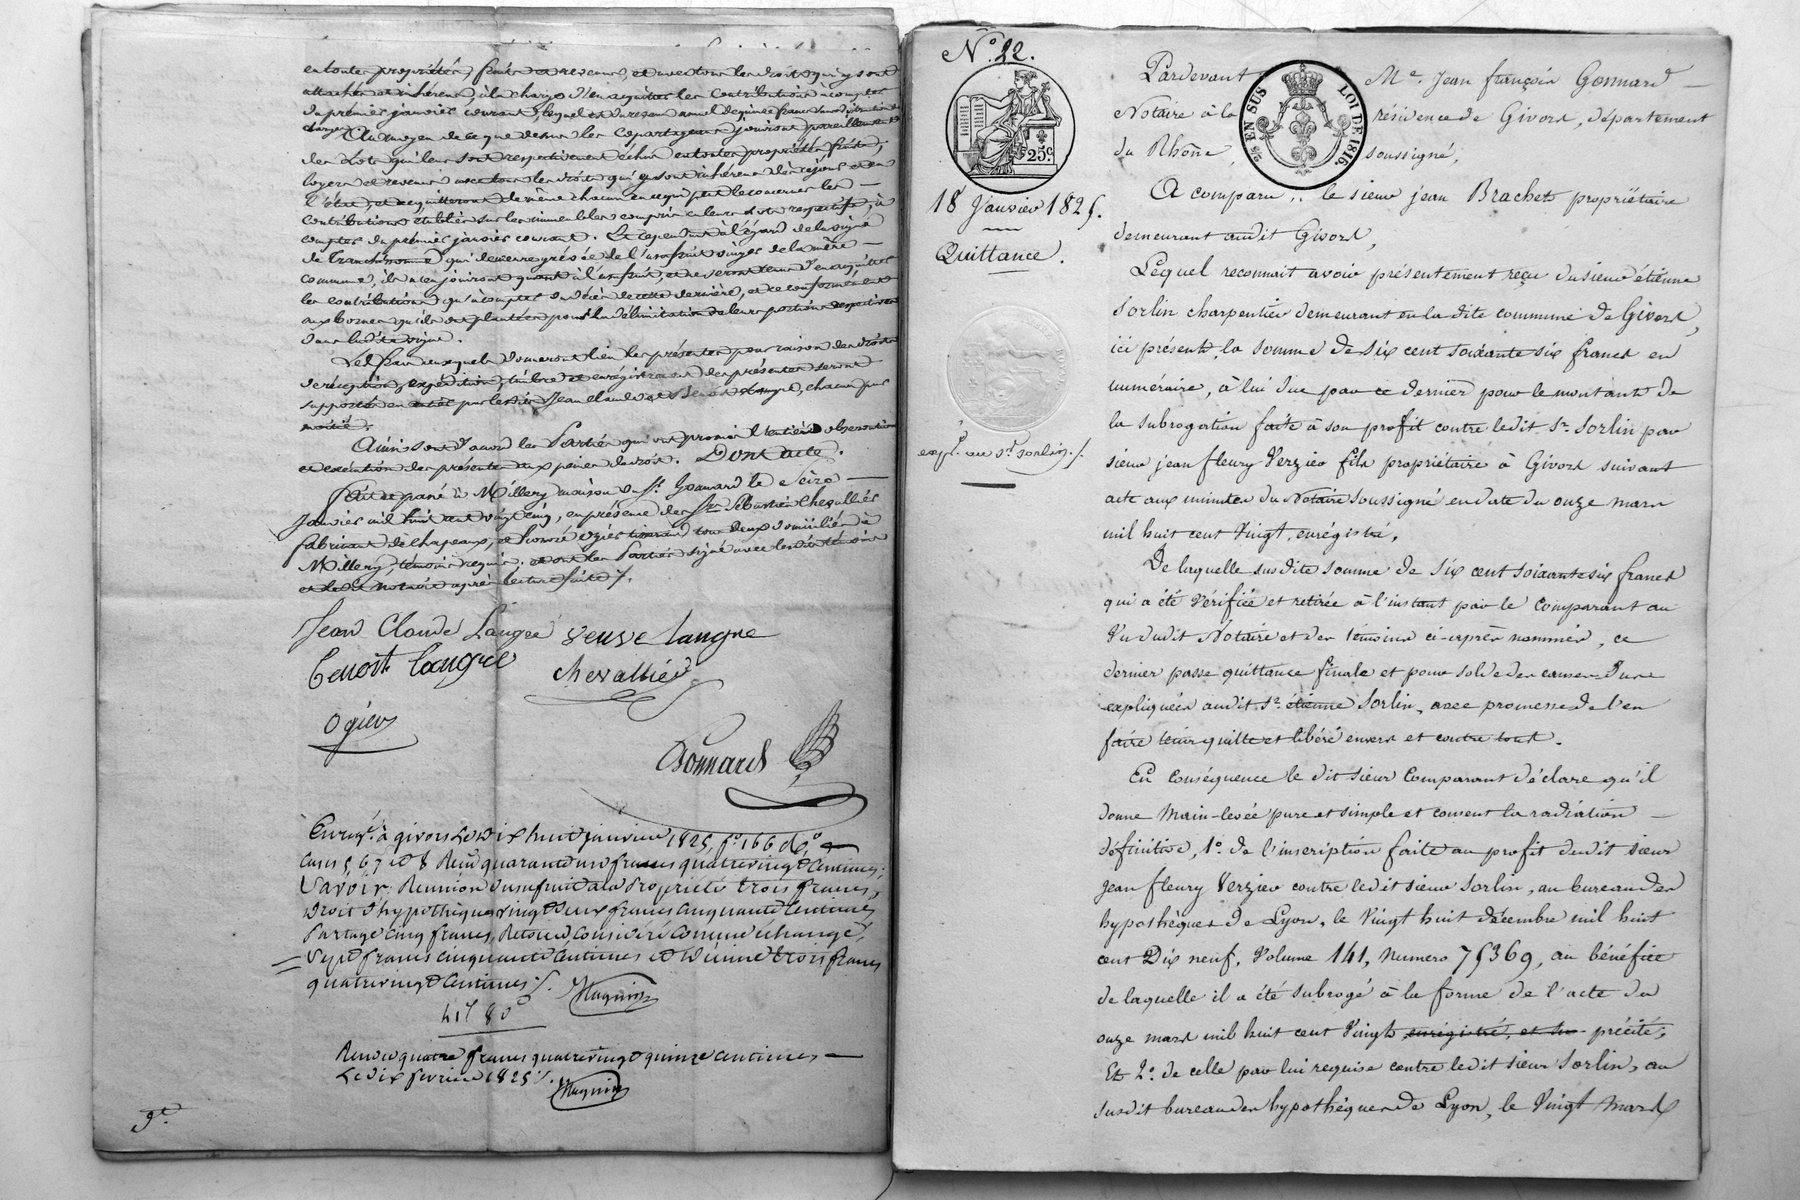 en toutes propriétés, fruits et revenus, et avec tous les droits qui y sont
attachés et inhérens, à la charge d'en acquitter les contributions à compter
du premier janvier courant, lequel est du revenu annuel de quinze francs
charges. Au moyen de ce que dessus les copartageans jouiront pareillement
des lots qui leur sont respectivement échus en toutes propriétés, fruits,
loyers et revenus avec tous les droits qui y sont inhérens dès ce jour et
l'état, et acquitteront de même chacun en ce qui peut le concerner les
contributions établies sur les immeubles compris en leurs lots respectifs, à
compter du premier janvier courant. Et cependant à l'égard de la vigne
de qui demeure grevée de l'usufruit viager de la mère
commune, ils n'en jouiront quant à l'usufruit, et ne seront tenus d'en acquitter
les contributions qu'à compter du décès de cette dernière, et se conformeront
aux bornes qu'ils ont plantées pour la délimitation de leurs portions respectives
dans ladite vigne.
Les frais auxquels donneront lieu les présentes pour raison des droits
de réception, expédition, timbre et enregistrement des présentes seront
supportés en par lesdits Jean Claude et Benoit Langre, chacun par
moitié.
Ainsi sont d'accord les Parties qui ont promis l'entière observation
et exécution des présentes aux peines de droit. Dont acte.
Fait et passé à Millery maison du Sr. Gonnard le seize
janvier mil huit cent vingt cinq, en présence des Srs Sébastien Chevallier
fabricant de chapeaux, et ogier tous deux domiciliés à
Millery, témoins requis, et ont les Parties signé avec les témoins
et ledit notaire après lecture faite /.
Jean Claude Langre veuve Langre
Benoit Langre chevallier
ogier
Gonnard
Enregé. à givors le dix huit janvier 1825, fo. 166 do.
cases 5, 6, 7 et 8 Reçu quarante un francs quatrevingt centimes;
Savoir: Réunion d'usufruit à la Propriété trois francs,
Droit d'hypothèque vingt deux francs cinquante centimes
Partage cinq francs, Retour, considéré comme échange,
sept francs cinquante centimes et dixième trois francs
quatrevingt centimes /.
41f 80c
Reçu quatre francs quatrevingt quinze centimes
le dix février 1825 /.
9e.
No. 22.
25c
18 Janvier 1825.
Quittance.
expn. au Sr. Sorlin /.
25 EN SUS LOI DE 1816.
Pardevant Me. Jean françois Gonnard
Notaire à la résidence de Givors, département
du Rhône, soussigné,
A comparu, le sieur jean Brachet propriétaire
demeurant audit Givors,
Lequel reconnait avoir présentement reçu du sieur étienne
Sorlin charpentier demeurant en la dite commune de Givors,
ici présent, la somme de six cent soixante six francs en
numéraire, à lui due par ce dernier pour le montant de
la subrogation faite à son profit contre ledit Sr. Sorlin par
sieur jean fleury Verzier fils propriétaire à Givors suivant
acte aux minutes du Notaire soussigné en date du onze mars
mil huit cent Vingt, enrégistré.
De laquelle susdite somme de six cent soixante six francs
qui a été Vérifiée et retirée à l'instant par le comparant au
Vu dudit Notaire et des témoins ci-après nommés, ce
dernier passe quittance finale et pour solde des causes d'une
expliquées audit Sr. étienne Sorlin, avec promesse de l'en
faire tenir quitte et libéré envers et contre tous.
En conséquence le dit sieur Comparant déclare qu'il
donne Main-levée pure et simple et consent la radiation
définitive, 1o. de l'inscription faite au profit dudit sieur
jean fleury Verzier contre ledit sieur Sorlin, au bureau des
hypothèques de Lyon, le Vingt huit décembre mil huit
cent Dix neuf, Volume 141, numero 75369, au bénéfice
de laquelle il a été subrogé à la forme de l'acte du
onze mars mil huit cent Vingt enrégistré, et précité;
Et 2o. de celle par lui requise contre ledit sieur Sorlin, au
susdit bureau des hypothèques de Lyon, le Vingt Mars